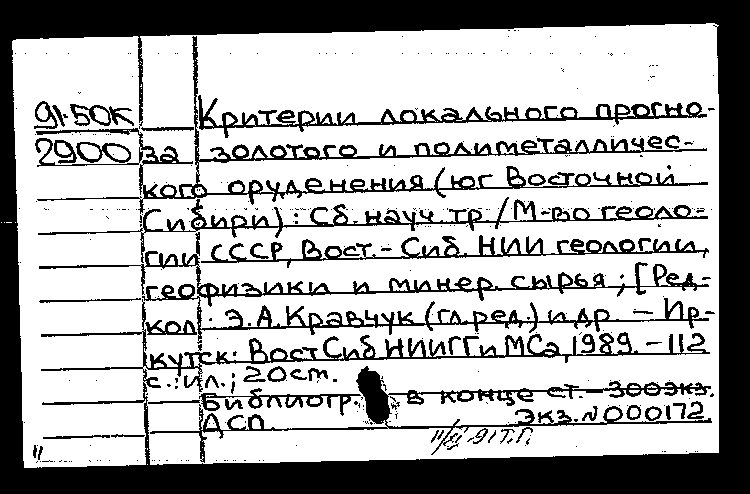 91-50К Критерии локального прогно-
2900 за золотого и полиметалличес-
кого оруденения (юг Восточной
Сибири) : Сб. науч. тр / М-во геоло-
гии СССР, Вост.- Сиб. НИИ геологии,
геофизики и минер. сырья ; [Ред-
кол : Э.А. Кравчук (гл.ред.) и др. - Ир-
кутск : ВостСибНИИГГиМСа, 1989. - 112
с. : ил. ; 20 ст.
Библиогр. в конце ст. - 300экз.
ДСП. Экз. N000172.
91 Т.П.
11